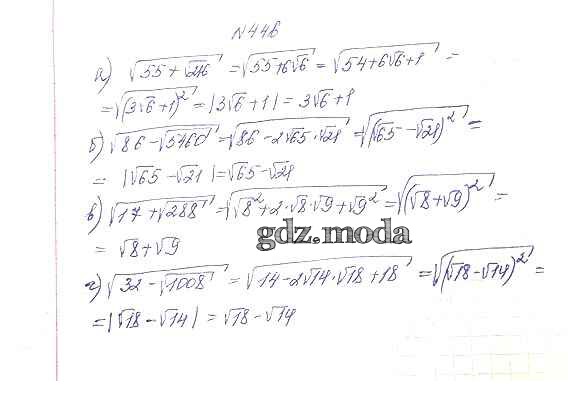 N446
а) √(55 + √216) = √(55 + 6√6) = √(54 + 6√6 + 1) =
= √(3√6 + 1)² = |3√6 + 1| = 3√6 + 1
б) √(86 − √5460) = √(86 − 2√65 · √21) = √(√65 − √21)² =
= |√65 − √21| = √65 − √21
в) √(17 + √288) = √(√8² + 2·√8·√9 + √9²) = √(√8 + √9)² =
= √8 + √9
gdz.moda
г) √(32 − √1008) = √(14 − 2√14·√18 + 18) = √(√18 − √14)² =
= |√18 − √14| = √18 − √14